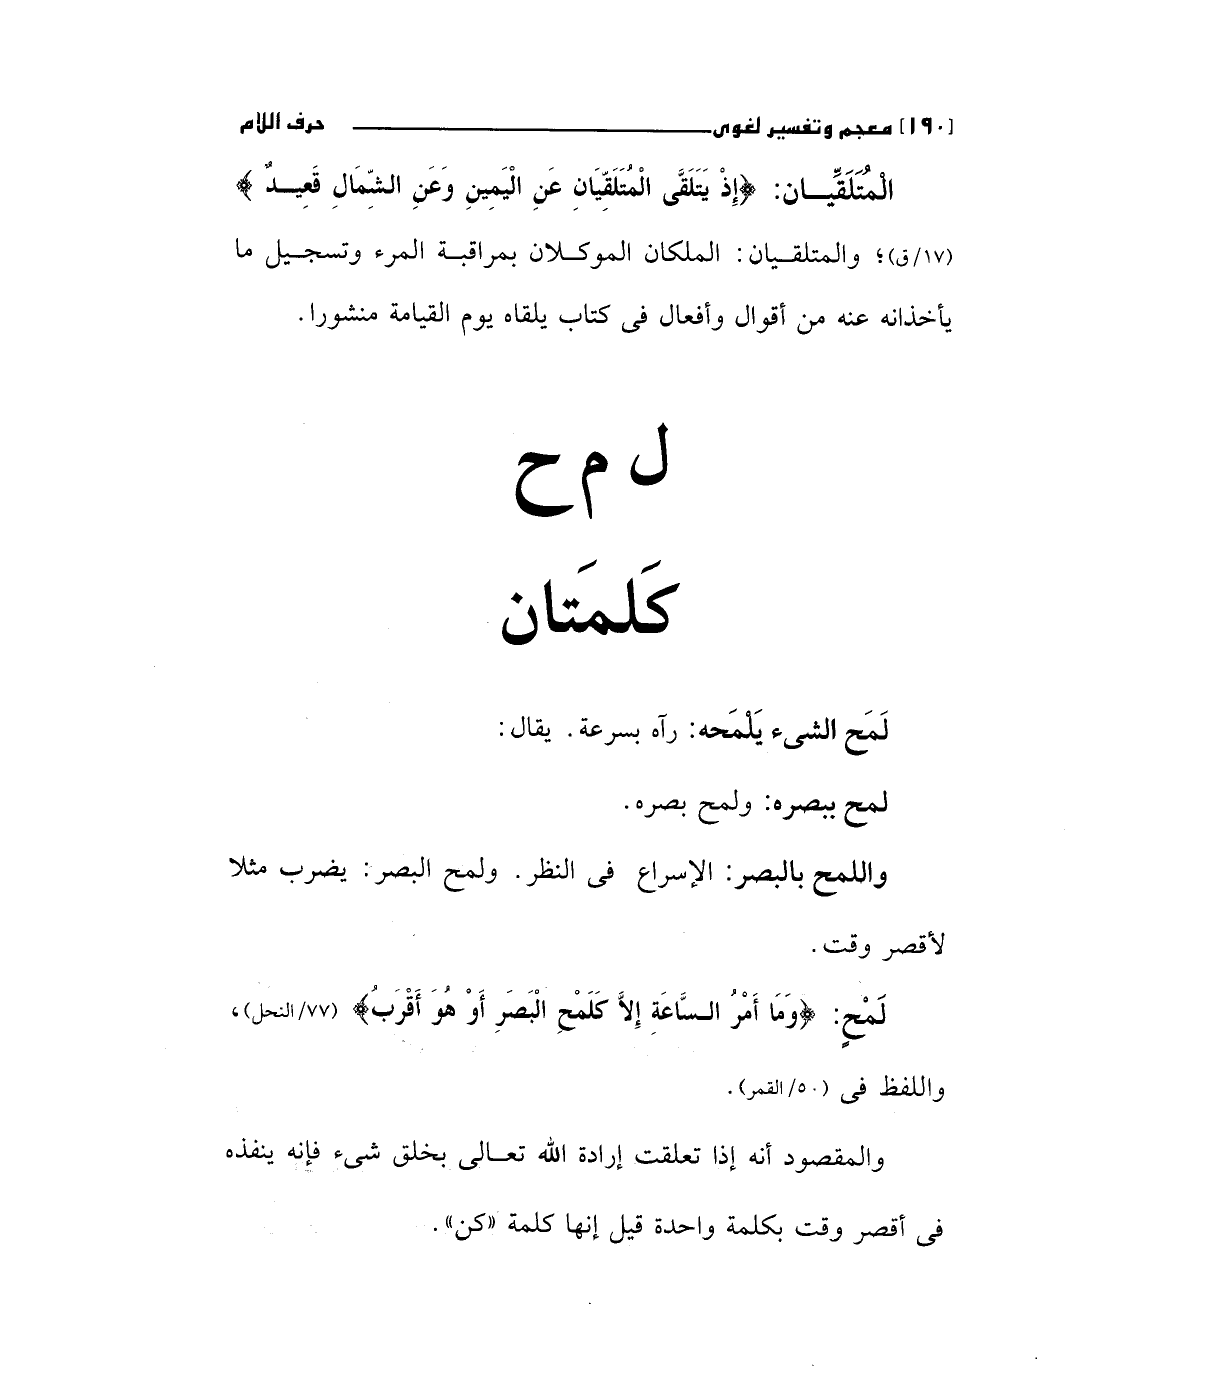 [١٩٠] معجم وتفسير لغوى حرف اللام
الْمُتَلَقِّيَــان: ﴿إِذْ يَتَلَقَّى الْمُتَلَقِّيَانِ عَنِ الْيَمِينِ وَعَنِ الشِّمَالِ قَعِيــدٌ ﴾
(١٧/ق)؛ والمتلقــيان: الملكان الموكــلان بمراقبـة المرء وتسجــيل ما
يأخذانه عنه من أقوال وأفعال فى كتاب يلقاه يوم القيامة منشورا.
ل م ح
كَلمَتَان
لَمَح الشىء يَلْمَحه: رآه بسرعة. يقال:
لمح ببصره: ولمح بصره.
واللمح بالبصر: الإسراع فى النظر. ولمح البصر: يضرب مثلا
لأقصر وقت.
لَمْحٍ: ﴿وَمَا أَمْرُ الـسَّاعَةِ إِلاَّ كَلَمْحِ الْبَصَرِ أَوْ هُوَ أَقْرَبُ﴾ (٧٧/النحل)،
واللفظ فى (٥٠/القمر).
والمقصود أنه إذا تعلقت إرادة الله تعــالى بخلق شىء فإنه ينفذه
فى أقصر وقت بكلمة واحدة قيل إنها كلمة «كن».